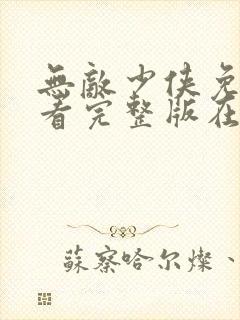 無敵少俠免
看完整版在
蘇察哈尔燦、